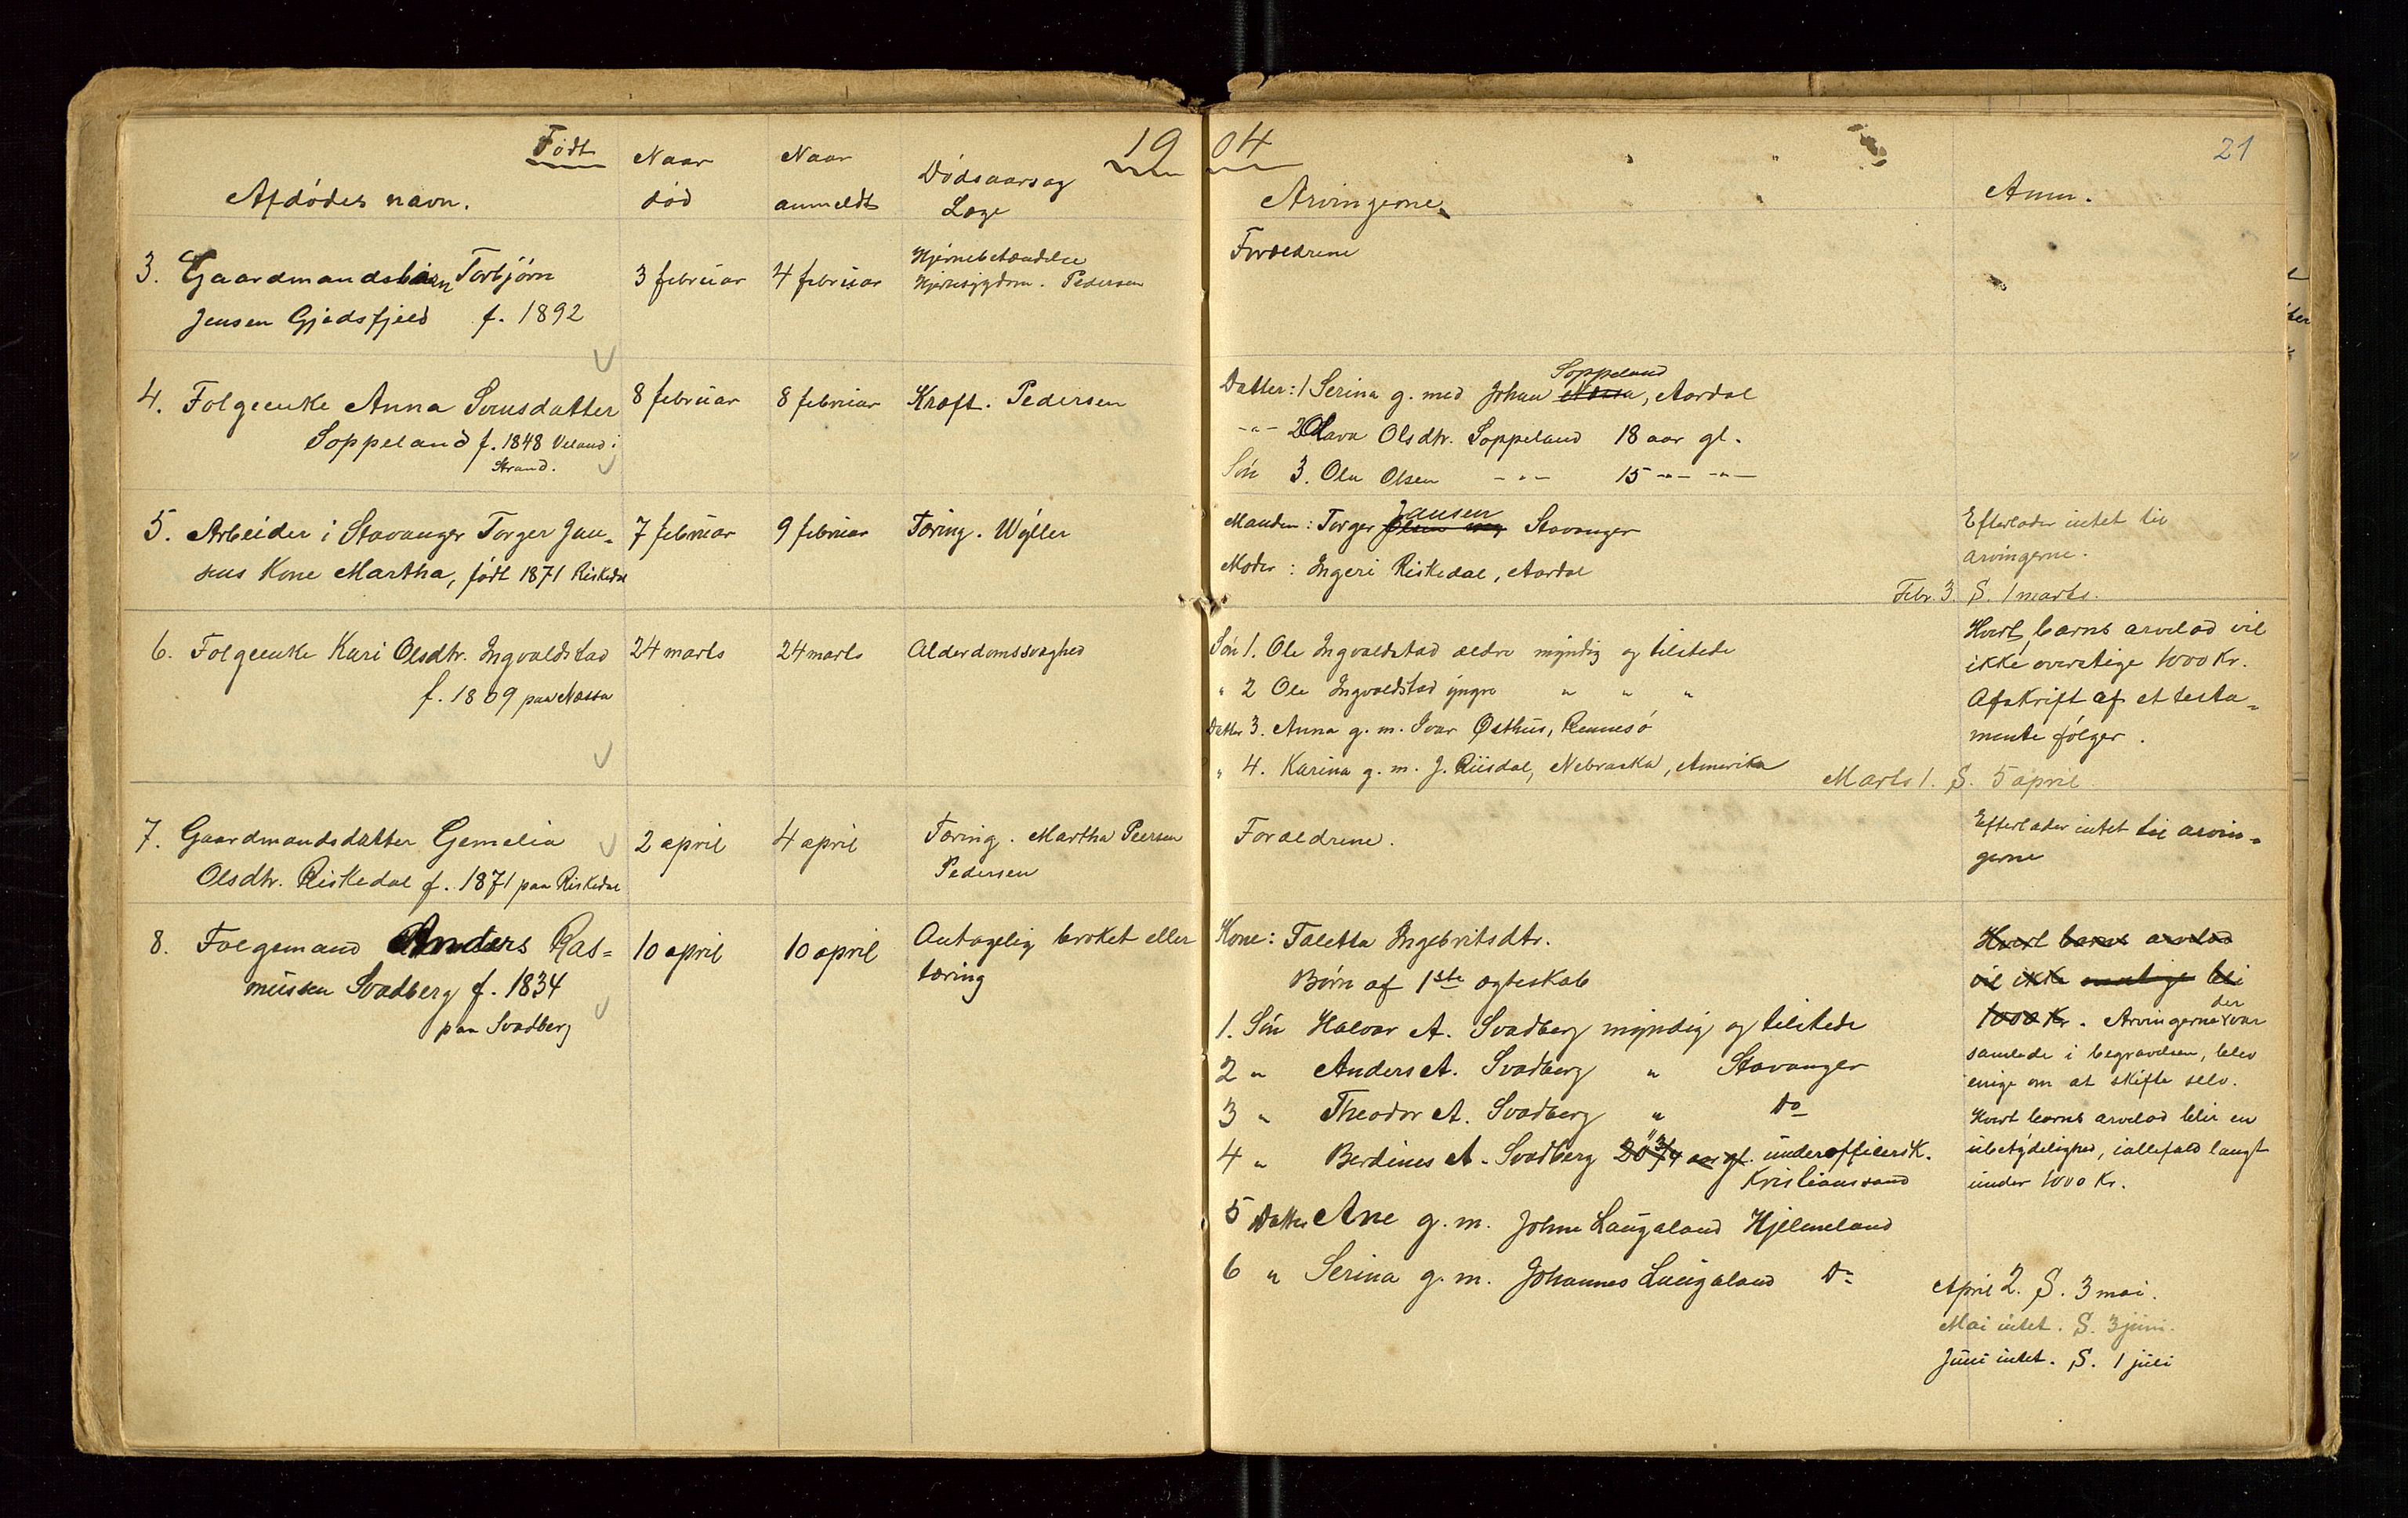 1904
21
Født
Afdødes navn.
Naar død
Naar anmeldt
Dødsaarsag Læge
Arvingerne
Anm.
3. Gaardmandsbarn Torbjørn
Jensen Gjedsfjeld f. 1892
3 februar
4 februar
Hjernebetændelse
Hjertesygdom. Pedersen
Forældrene
4. Folgeenke Anna Svensdatter
Soppeland f. 1848 Veland i
Strand.
8 februar
8 februar
Kræft. Pedersen
Soppeland
Datter: 1 Serina g. med Johan, Aardal
-"- 2 Olava Olsdtr. Soppeland 18 aar gl.
Søn 3. Ole Olsen -"- 15 -"- -"-
5. Arbeider i Stavanger Torger Jan-
sens Kone Martha, født 1871 Riskedal
7 februar
9 februar
Tæring. Wyller
Jansen
Manden: Torger Olsen Stavanger
Moder: Ingeri Riskedal, Aardal
Efterlader intet til
arvingerne.
Febr. 3. S. 1 marts.
6. Folgeenke Kari Olsdtr. Ingvaldstad
f. 1809 paa Nessa
24 marts
24 marts
Alderdomssvaghed
Søn 1. Ole Ingvaldstad ældre myndig og tilstede
" 2 Ole Ingvaldstad yngre " " "
Datter 3. Anna g. m. Ivar Østhus, Rennesø
" 4. Karina g. m. J. Riisdal, Nebraska, Amerika
Hvert barns arvelod vil
ikke overstige 1000 Kr.
Afskrift af et testa-
mente følger.
Marts 1. S. 5 april
7. Gaardmandsdatter Gemalia
Olsdtr. Riskedal f. 1871 paa Riskedal
2 april
4 april
Tæring. Martha Peersen
Pedersen
Forældrene.
Efterlader intet til arvin-
gerne
8. Folgemand Anders Ras-
mussen Svadberg f. 1834
paa Svadberg
10 april
10 april
Antagelig broket eller
tæring
Kone: Taletta Ingebritsdtr.
Børn af 1ste ægteskab
1. Søn Halvar A. Svadberg myndig og tilstede
2 " Anders A. Svadberg " Stavanger
3 " Theodor A. Svadberg " Do
4 " Berdines A. Svadberg 20 3/4 aar gl. underofficersk.
Kristianssand
5 Datter Ane g. m. John Laugaland Hjelmeland
6 " Serina g. m. Johannes Laugaland Do
Hvert barns arvelod
vil ikke overstige bli
1000 Kr. Arvingerne der var
samlede i begravelsen, blev
enige om at skifte selv.
Hvert barns arvelod blir en
ubetydelighed, iallefald langt
under 1000 Kr.
April 2. S. 3 mai.
Mai intet. S. 3 juni.
Juni intet. S. 1 juli